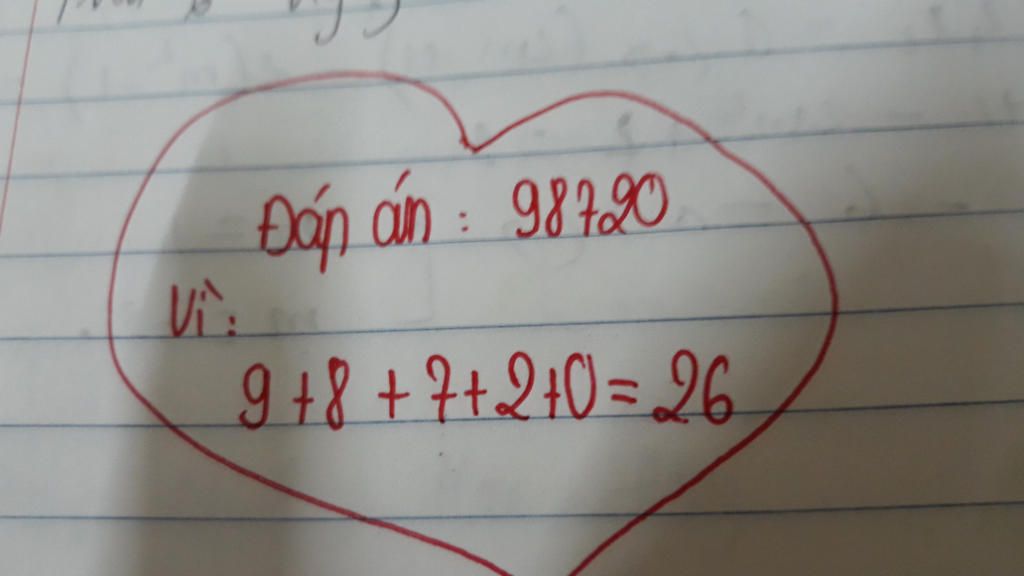 Đáp án: 98720
Vì:
9+8+7+2+0=26